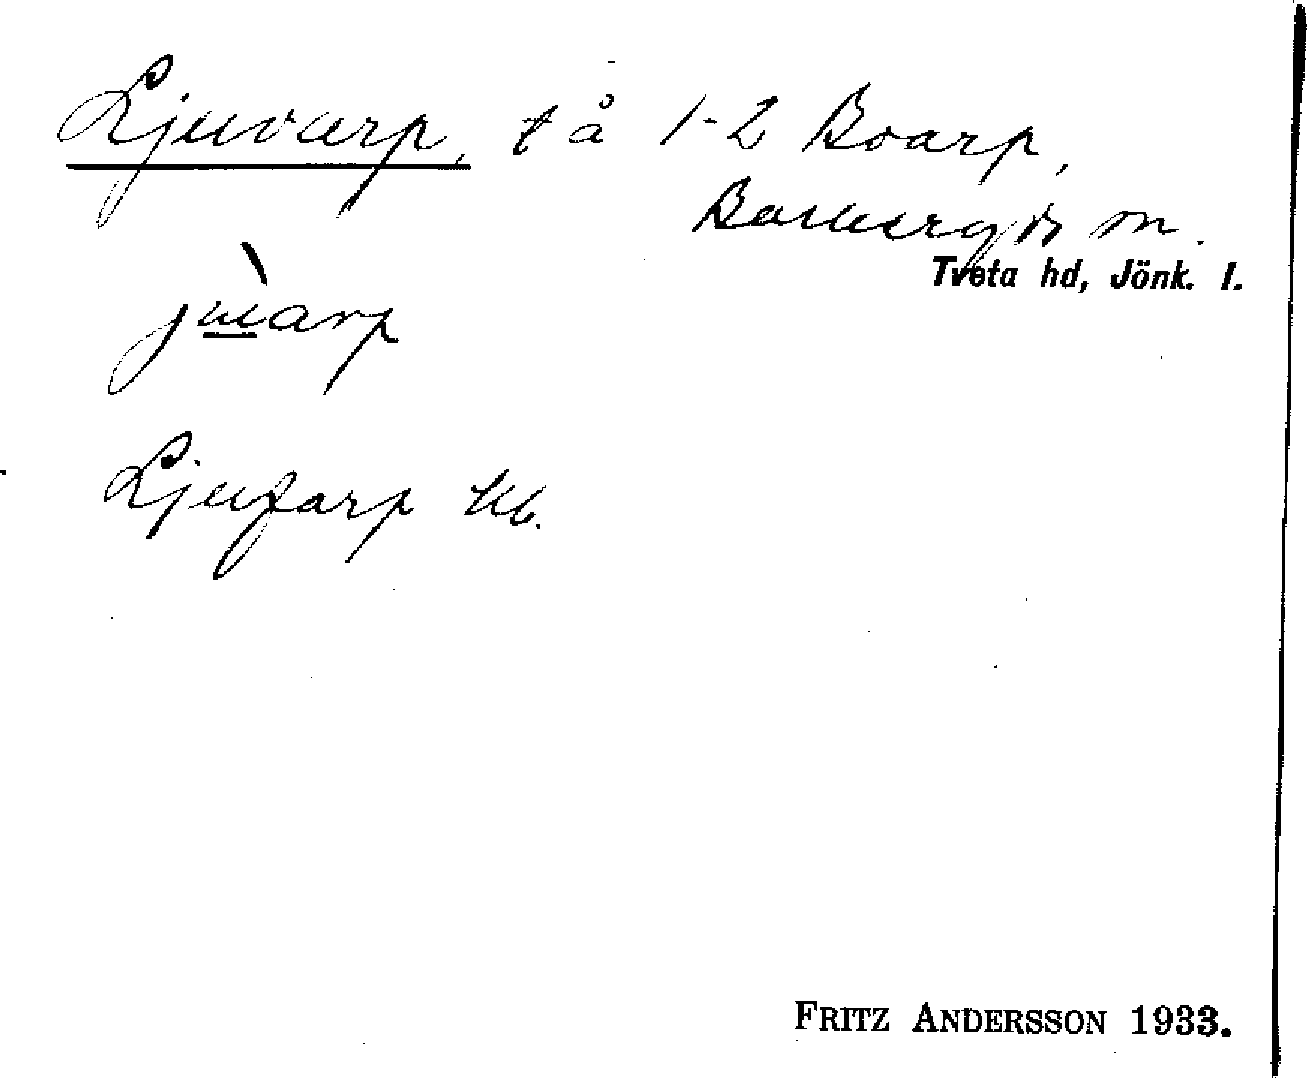 Ljuvarp, t å 1-2 Boarp,
Barkeryds sn.
Tveta hd, Jönk. l.
jùarp
Ljufarp kb.
FRITZ ANDERSSON 1933.